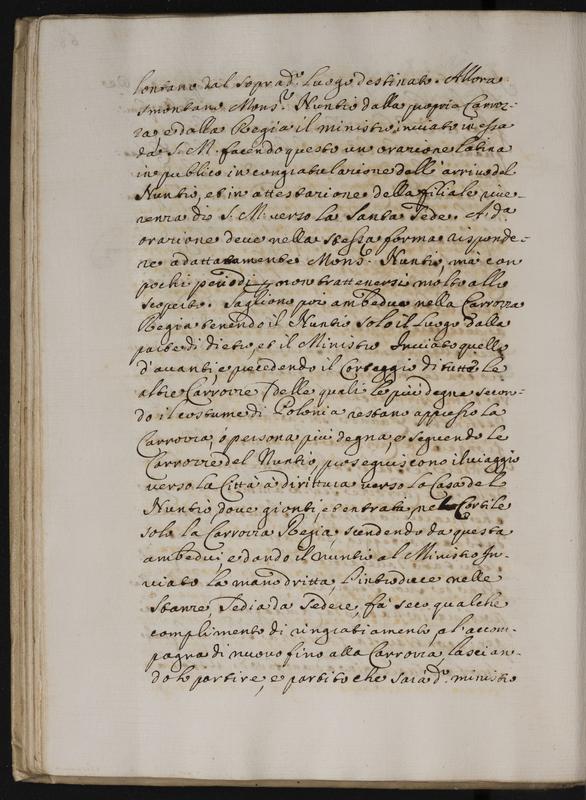 lontano dal soprad.º Luogo destinato. Allora
smontano Mons.r Nuntio dalla propria Carroz-
za e dalla Regia il ministro inviato in essa
da S. M. facendo questo un orazione latina
in publico in congiatulazione dell' arrivo del
Nuntio, et in attestazione della filiale rive-
renza di S. M. verso la Santa Sede. A d.a
orazione deve nella stessa forma risponde-
re adattatamente Mons.r Nuntio, mà con
pochi periodi p non trattenersi molto allo
scoperto. Sagliono poi ambedue nella Carrozza
Regia tenendo il Nuntio solo il Luogo dalla
parte di dietro, et il Ministro Inviato quello
d'avanti, e precedendo il Corteggio di tutte le
altre Carrozze /delle quali le più degne secon-
do il costume di Polonia restano appresso la
Carrozza, ò persona più degna, e seguendo le
Carrozze del Nuntio, proseguiscono il viaggio
verso la Città à dirittura verso la Casa del
Nuntio dove gionti, et entrata nel Cortile
solo la Carrozza Regia, scendendo da questa
ambedui, e dando il nuntio al Ministro In-
viato la mano dritta, l'introduce nelle
Stanze, Sedia da Sedere, fà seco qualche
complimento di ringratiamento, e l'accom-
pagna di nuovo fino alla Carrozza, lascian-
dolo partire, e partito che sarà d.º ministro